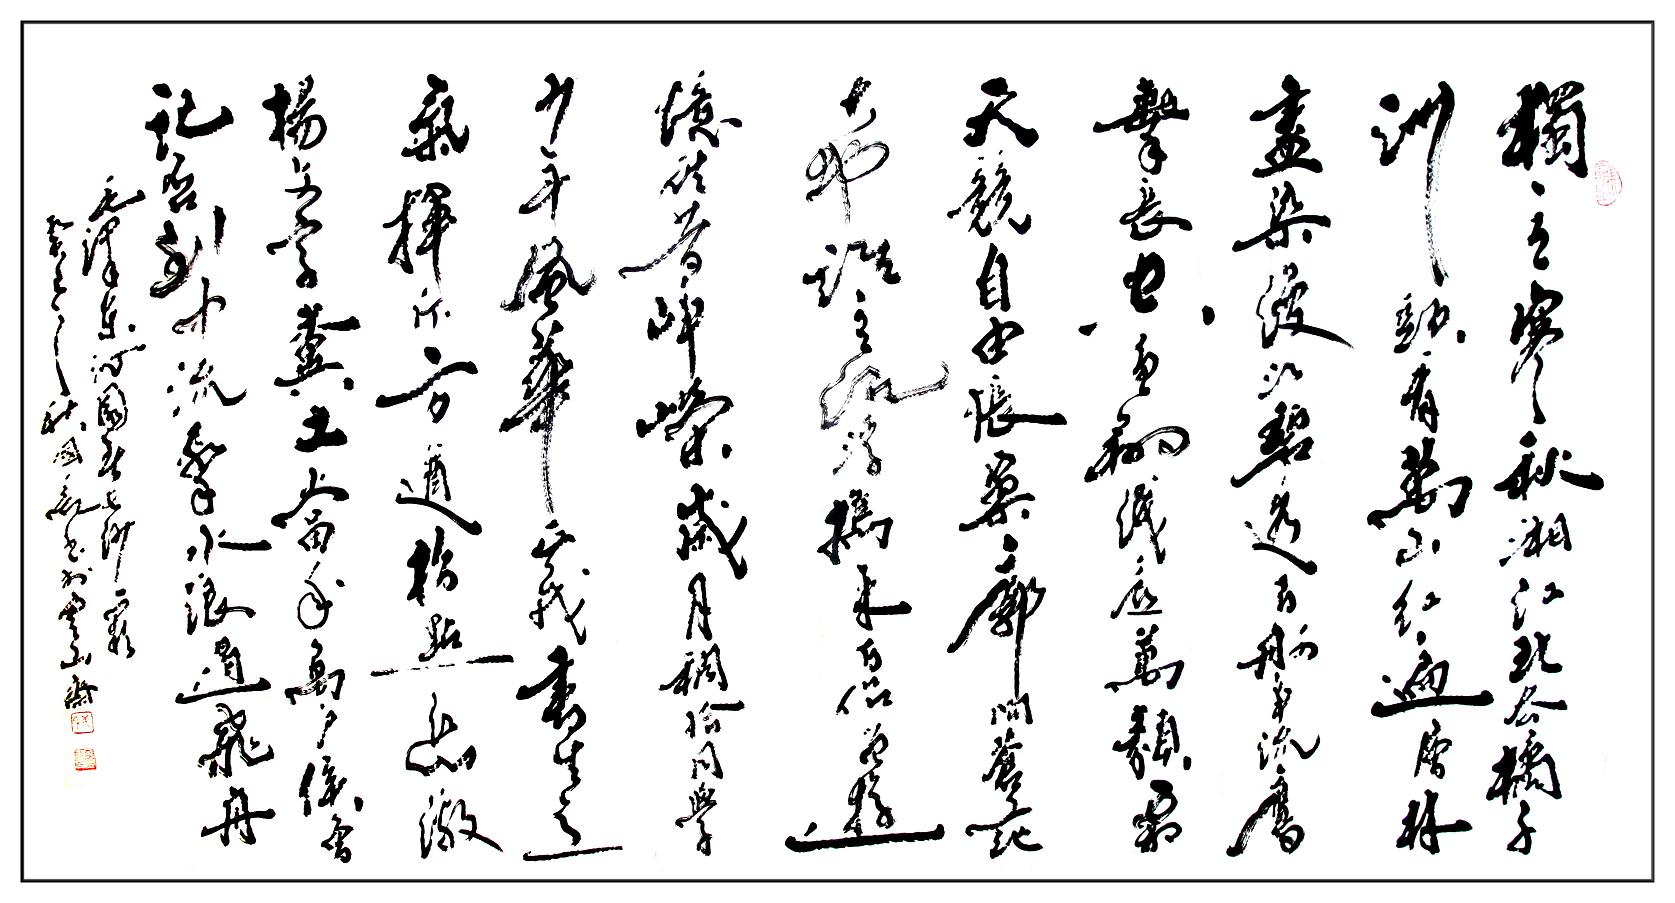 獨立寒秋湘江北去橘子
洲頭看萬山紅遍層林
盡染漫江碧透百舸爭流鷹
擊長空魚翔淺底萬類霜
天競自由悵寥廓問蒼茫
大地誰主沉浮攜來百侶曾遊
憶往昔崢嶸歲月稠恰同學
少年風華正茂書生意
氣揮斥方遒指點江山激
揚文字糞土當年萬戶侯曾
記否到中流擊水浪遏飛舟
毛澤東沁園春長沙
癸巳之秋國書於雲山齋